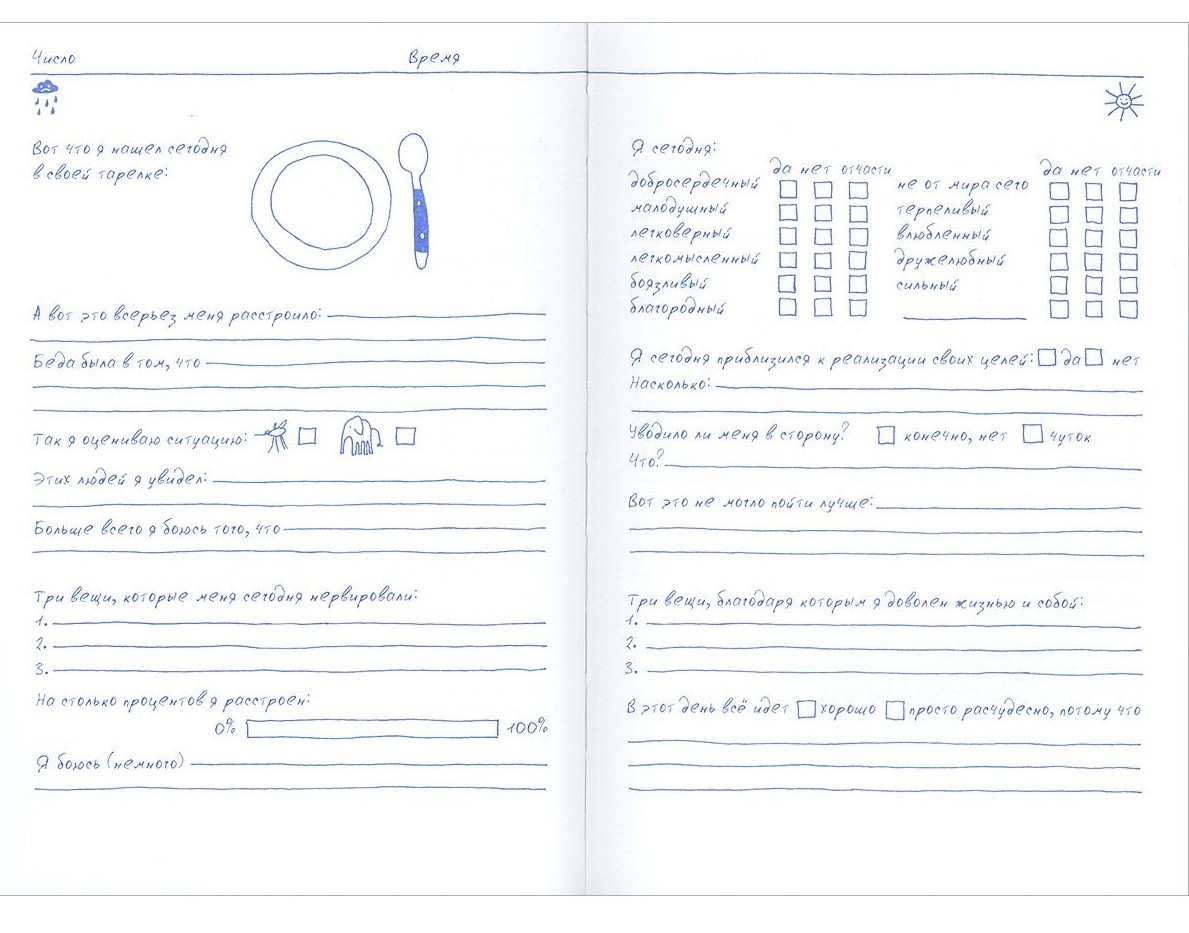 Число
Время
Вот что я нашел сегодня
в своей тарелке:
А вот это всерьез меня расстроило:
Беда была в том, что
Так я оцениваю ситуацию:
Этих людей я увидел:
Больше всего я боюсь того, что
Три вещи, которые меня сегодня нервировали:
1.
2.
3.
На столько процентов я расстроен:
0% 100%
Я боюсь (немного)
Я сегодня:
да нет отчасти да нет отчасти
добросердечный не от мира сего
малодушный терпеливый
легковерный влюбленный
легкомысленный дружелюбный
боязливый сильный
благородный
Я сегодня приблизился к реализации своих целей: да нет
Насколько:
Уводило ли меня в сторону? конечно, нет чуток
Что?
Вот это не могло пойти лучше:
Три вещи, благодаря которым я доволен жизнью и собой:
1.
2.
3.
В этот день всё идет хорошо просто расчудесно, потому что